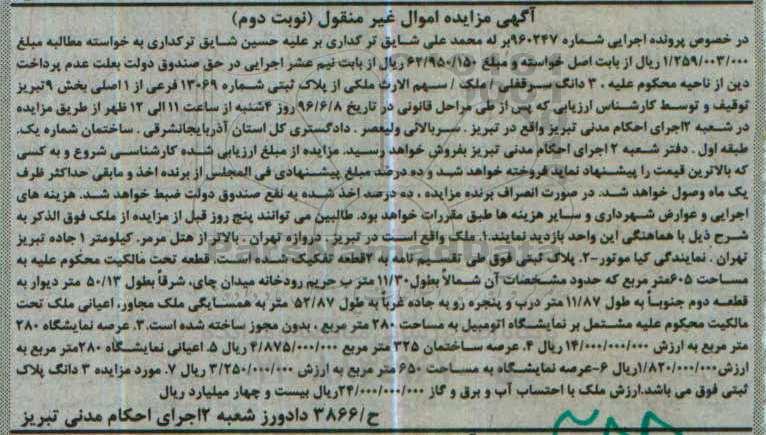 آگهی مزایده اموال غیر منقول (نوبت دوم)
در خصوص پرونده اجرایی شماره ۹۶۰۲۴۷بر له محمد علی شایق تر کداری بر علیه حسین شایق ترکداری به خواسته مطالبه مبلغ
۱/۲۵۹/۰۰۳/۰۰۰ ریال از بابت اصل خواسته و مبلغ ۶۲/۹۵۰/۱۵۰ ریال از بابت نیم عشر اجرایی در حق صندوق دولت بعلت عدم پرداخت
دین از ناحیه محکوم علیه ، ۳ دانگ سرقفلی / ملک / سهم الارث ملکی از پلاک ثبتی شماره ۱۳۰۶۹ فرعی از ۱ اصلی بخش ۹تبریز
توقیف و توسط کارشناس ارزیابی که پس از طی مراحل قانونی در تاریخ ۹۶/۶/۸ روز ۴شنبه از ساعت ۱۱ الی ۱۲ ظهر از طریق مزایده
در شعبه ۲اجرای احکام مدنی تبریز واقع در تبریز . سربالائی ولیعصر . دادگستری کل استان آذربایجانشرقی . ساختمان شماره یک.
طبقه اول . دفتر شعبه ۲ اجرای احکام مدنی تبریز بفروش خواهد رسید. مزایده از مبلغ ارزیابی شده کارشناسی شروع و به کسی
که بالاترین قیمت را پیشنهاد نماید فروخته خواهد شد و ده درصد مبلغ پیشنهادی فی المجلس از برنده اخذ و مابقی حداکثر ظرف
یک ماه وصول خواهد شد. در صورت انصراف برنده مزایده ، ده درصد اخذ شده به نفع صندوق دولت ضبط خواهد شد. هزینه های
اجرایی و عوارض شهرداری و سایر هزینه ها طبق مقررات خواهد بود. طالبین می توانند پنج روز قبل از مزایده از ملک فوق الذکر به
شرح ذیل با هماهنگی این واحد بازدید نمایند.۱. ملک واقع است در تبریز. دروازه تهران . بالاتر از هتل مرمر. کیلومتر ۱ جاده تبریز
تهران . نمایندگی کیا موتور-۲. پلاک ثبتی فوق طی تقسیم نامه به ۲قطعه تفکیک شده است. قطعه تحت مالکیت محکوم علیه به
مساحت ۶۰۵متر مربع که حدود مشخصات آن شمالاً بطول ۱۱/۳۰ متر ب حریم رودخانه میدان چای، شرقاً بطول ۵۰/۱۳ متر دیوار به
قطعه دوم جنوباً به طول ۱۱/۸۷ متر درب و پنجره رو به جاده غرباً به طول ۵۲/۸۷ متر به همسایگی ملک مجاور، اعیانی ملک تحت
مالکیت محکوم علیه مشتمل بر نمایشگاه اتومبیل به مساحت ۲۸۰ متر مربع ، بدون مجوز ساخته شده است.۳. عرصه نمایشگاه ۲۸۰
متر مربع به ارزش ۱۴/۰۰۰/۰۰۰/۰۰۰ ریال ۴. عرصه ساختمان ۳۲۵ متر مربع ۴/۸۷۵/۰۰۰/۰۰۰ ریال ۵. اعیانی نمایشگاه ۲۸۰متر مربع به
ارزش ۱/۸۲۰/۰۰۰/۰۰۰ریال ۶-عرصه نمایشگاه به مساحت ۶۵۰ متر مربع به ارزش ۳/۲۵۰/۰۰۰/۰۰۰ ریال ۷. مورد مزایده ۳ دانگ پلاک
ثبتی فوق می باشد.ارزش ملک با احتساب آب و برق و گاز ۲۴/۰۰۰/۰۰۰/۰۰۰ریال بیست و چهار میلیارد ریال
ح/۳۸۶۶ دادورز شعبه ۲اجرای احکام مدنی تبریز